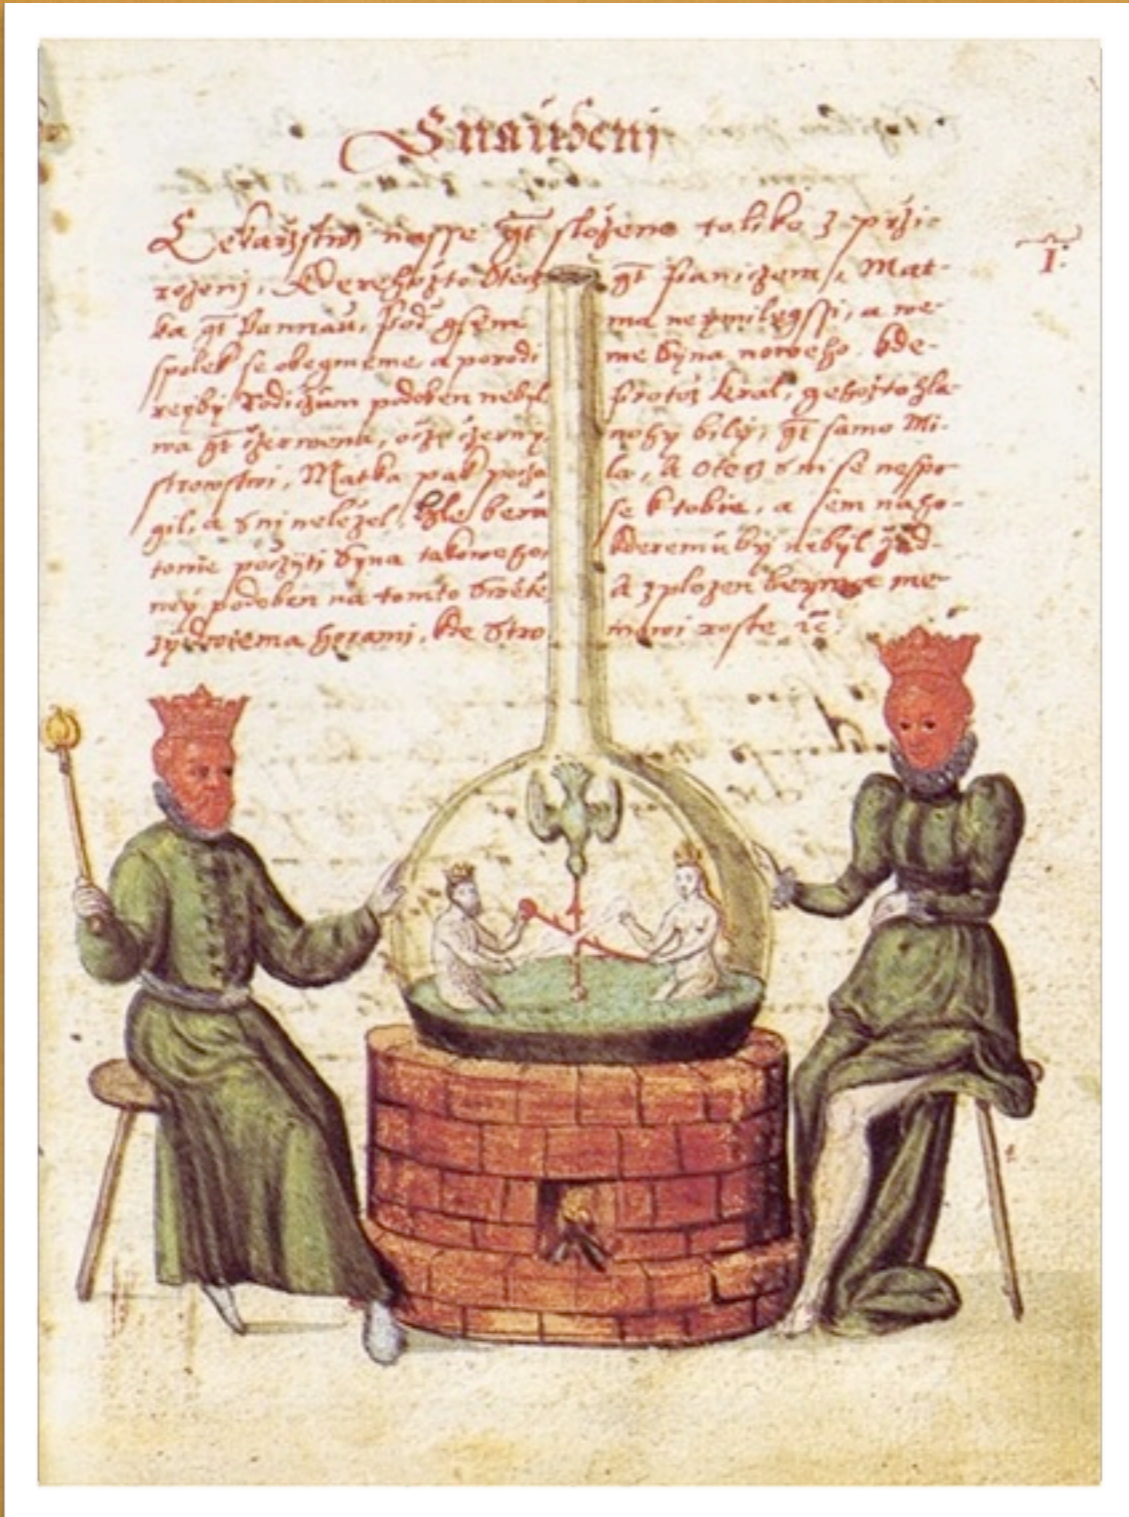 Snaubeni
Lekarzstwj nasse gt slozeno toliko z przi-
rozenj, Otecz gt Paniczem, Mat-
ka gt Pannau, Pod gsem ma neymileyssj, a we-
spolek se obegmeme, a porodi me Syna noweho, kde-
reyby Rodiczum podoben nebyl Protoz kral, gehozto hla-
wa gt czerwena, oczi czerny, nohy bily, gt samo Mi-
strowstwi, Matka pak pocza la, A Otecz s ni se nespo-
gil, a s ni nelezel, beru se k tobie, a sem na ho-
towie pocziti Syna takoweho, kderemu by nebyl zad-
ney podoben na tomto Swiete A zplozen me-
zy dwiema horami, roste
I: